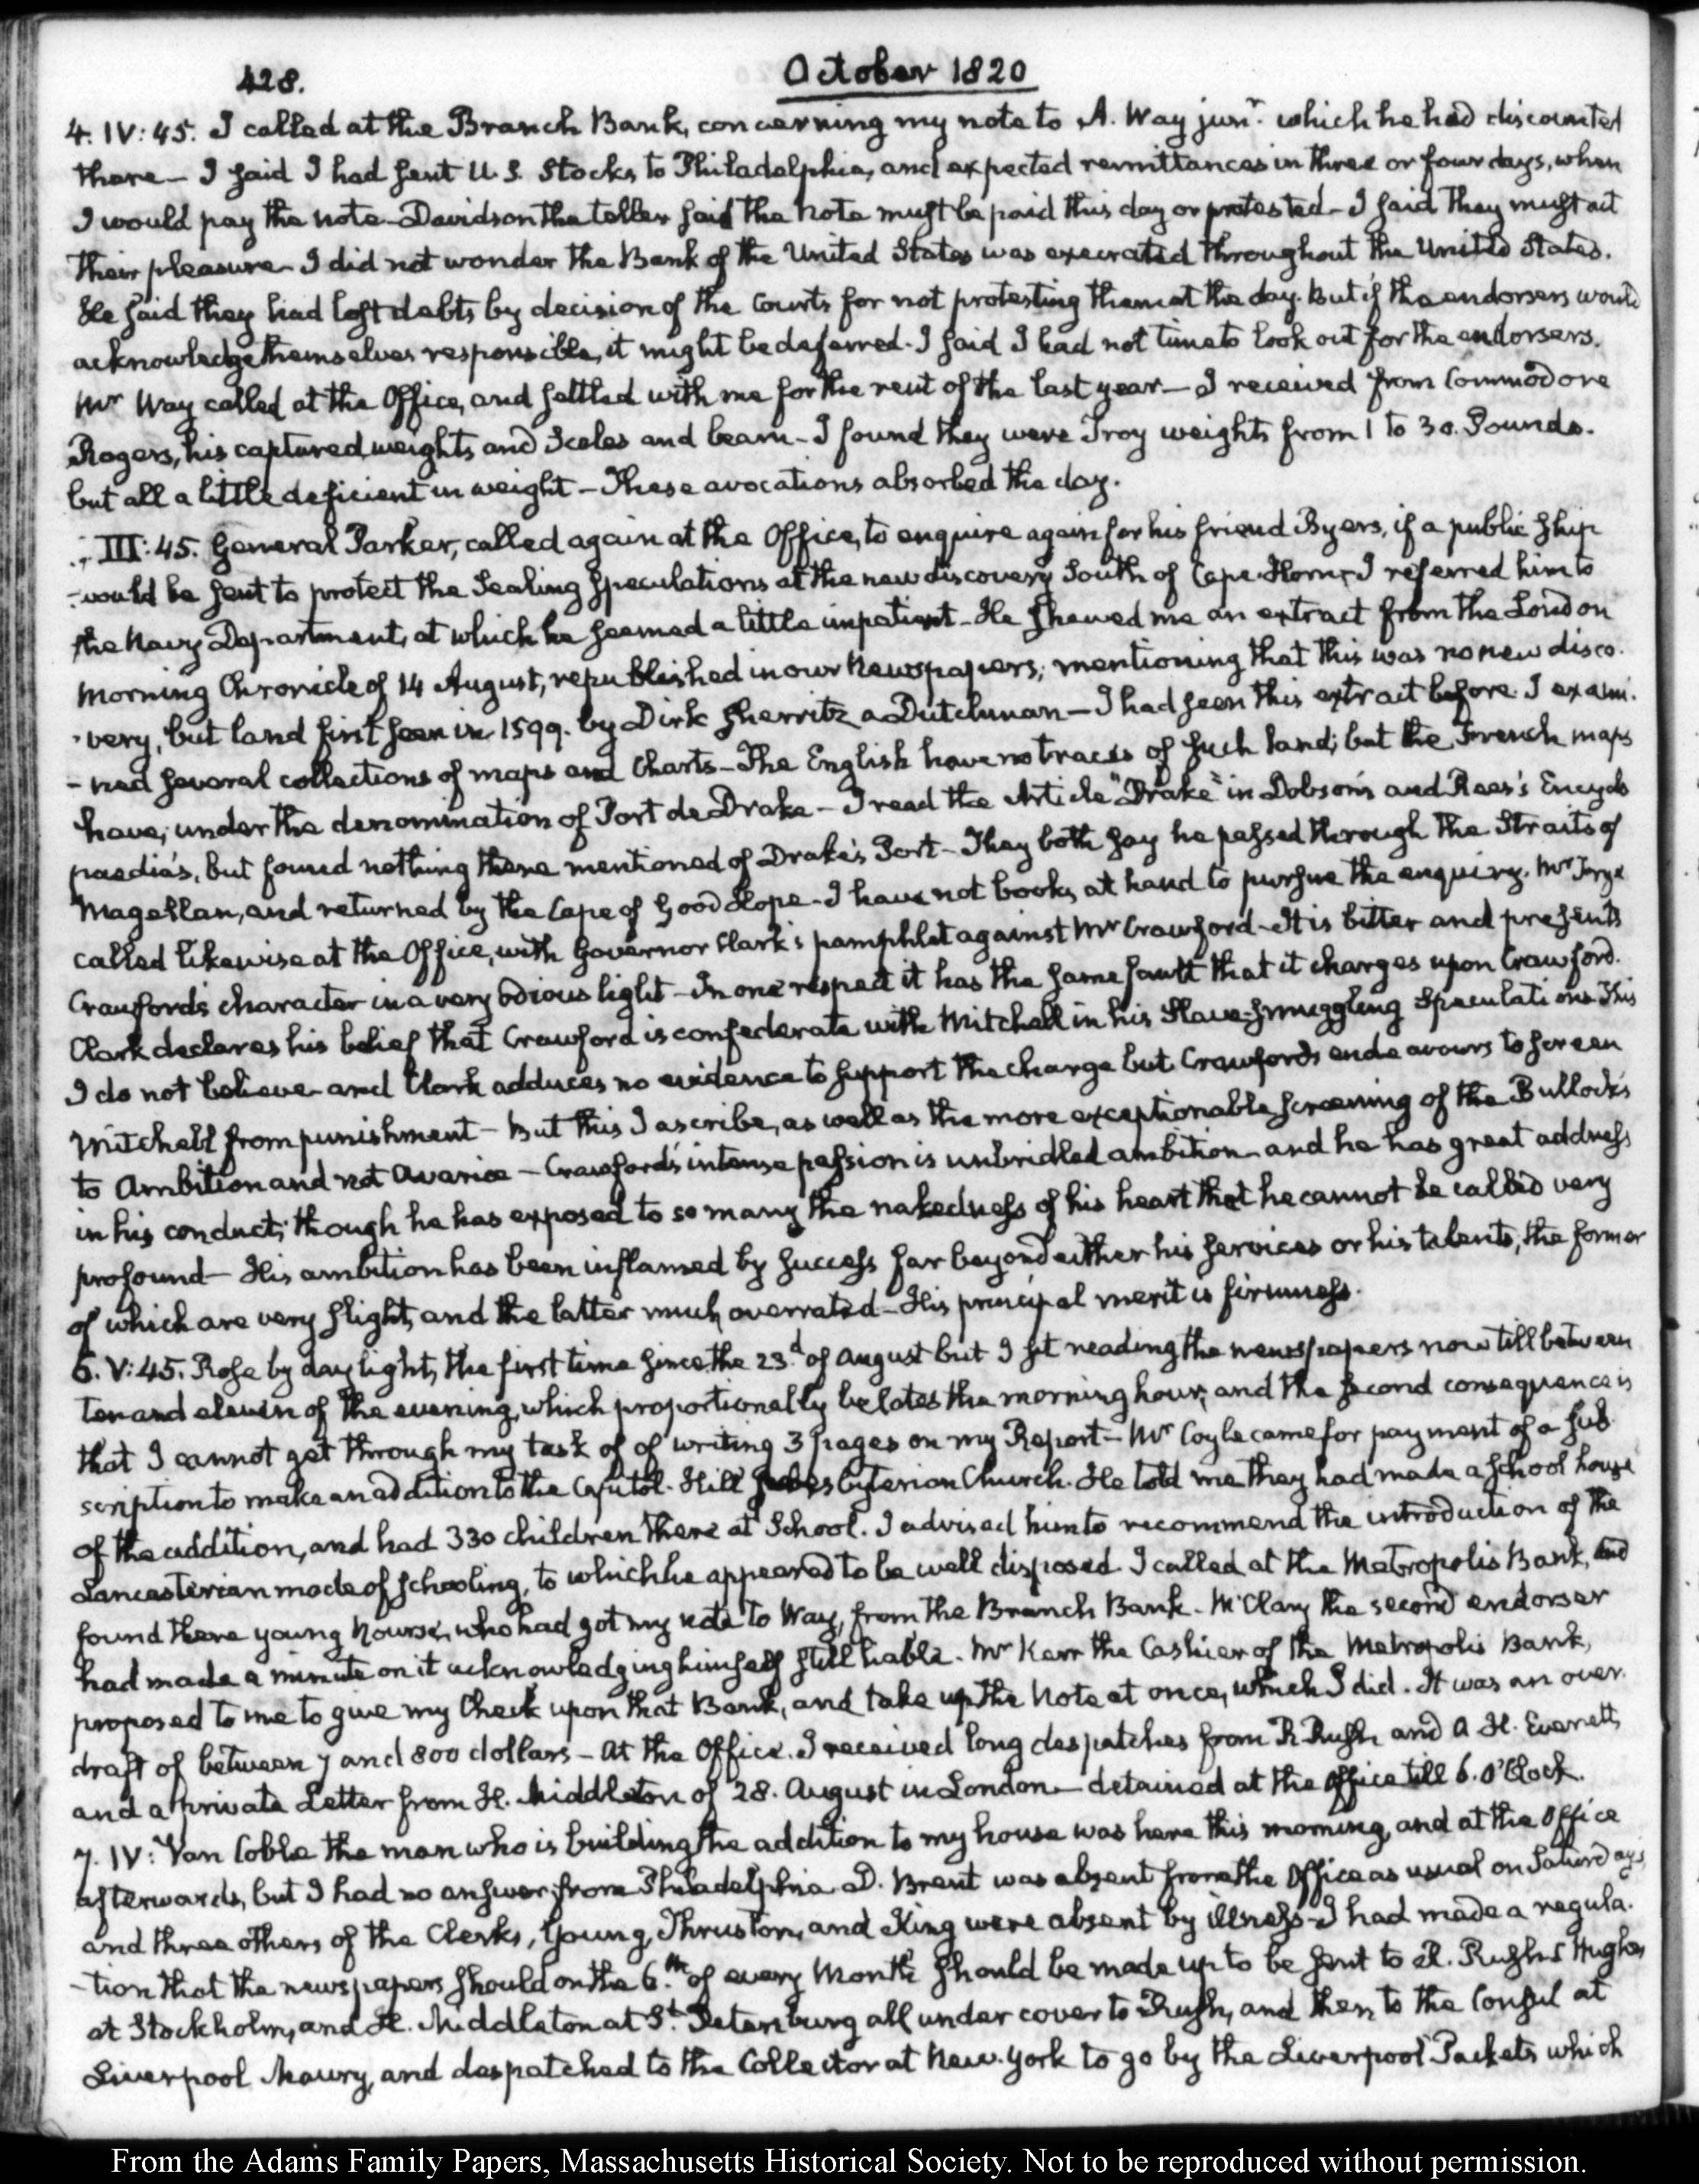 428.
October 1820
4. IV: 45. I called at the Branch Bank, concerning my note to A. Way junr. which he had discounted
there — I said I had sent U.S. Stocks to Philadelphia, and expected remittances in three or four days, when
I would pay the note — Davidson the teller said the note must be paid this day or protested — I said they must act
their pleasure — I did not wonder the Bank of the United States was execrated throughout the United States.
He said they had lost debts by decision of the Courts for not protesting them at the day. But if the endorsers would
acknowledge themselves responsible, it might be deferred. I said I had not time to look out for the endorsers.
Mr Way called at the Office, and settled with me for the rent of the last year — I received from Commodore
Rogers, his captured weights and Scales and beam — I found they were Troy weights from 1 to 30. Pounds.
but all a little deficient in weight — These avocations absorbed the day.
III: 45. General Parker, called again at the Office, to enquire again for his friend Byers, if a public ship
would be sent to protect the Sealing Speculations at the new discovery South of Cape-Horn — I referred him to
the Navy Department, at which he seemed a little impatient — He shewed me an extract from the London
Morning Chronicle of 14 August, republished in our Newspapers; mentioning that this was no new disco-
-very, but land first seen in 1599. by Dirk Gherritz a Dutchman — I had seen this extract before. I exami-
-ned several collections of maps and Charts — The English have no traces of such land; but the French maps
have, under the denomination of Port de Drake — I read the Article "Drake" in Dobson's and Rees's Encyclo
paedia's, but found nothing there mentioned of Drake's Port — They both say he passed through the Straits of
Magellan, and returned by the Cape of Good Hope — I have not books at hand to pursue the enquiry. Mr
called likewise at the Office, with Governor Clark's pamphlet against Mr Crawford — It is bitter and presents
Crawford's character in a very odious light — In one respect it has the same fault that it charges upon Crawford.
Clark declares his belief that Crawford is confederate with Mitchell in his Slave-smuggling Speculations — This
I do not believe — and Clark adduces no evidence to support the charge but Crawford's endeavours to screen
Mitchell from punishment — But this I ascribe, as well as the more exceptionable screening of the Bullock's
to Ambition and not Avarice — Crawford's intense passion is unbridled ambition — and he has great address
in his conduct; though he has exposed to so many the nakedness of his heart that he cannot be called very
profound — His ambition has been inflamed by success far beyond either his services or his talents; the former
of which are very slight, and the latter much overrated — His principal merit is firmness.
6. V: 45. Rose by day light, the first time since the 23d of August but I sit reading the newspapers now till between
ten and eleven of the evening, which proportionally belates the morning hour; and the second consequence is
that I cannot get through my task of of writing 3 pages on my Report — Mr Coyle came for payment of a sub
scription to make an addition to the Capitol-Hill Presbyterian Church. He told me they had made a school house
of the addition, and had 330 children there at School. I advised him to recommend the introduction of the
Lancasterian mode of schooling, to which he appeared to be well disposed. I called at the Metropolis Bank, and
found there young Nourse, who had got my note to Way, from the Branch Bank. McClary the second endorser
had made a minute on it acknowledging himself still liable. Mr Kerr the Cashier of the Metropolis Bank,
proposed to me to give my Check upon that Bank, and take up the Note at once, which I did. It was an over-
draft of between 7 and 800 dollars — At the Office. I received long despatches from R. Rush and A. H. Everett,
and a private Letter from H. Middleton of 28. August in London — detained at the Office till 6. O'Clock.
7. IV: Van Coble the man who is building the addition to my house was here this morning, and at the Office
afterwards, but I had no answer from Philadelphia. D. Brent was absent from the Office as usual on Saturdays
and three others of the Clerks, Young, Thruston, and King were absent by illness — I had made a regula-
-tion that the newspapers should on the 6.th of every Month should be made up to be sent to R. Rush Hughes
at Stockholm, and H. Middleton at St. Petersburg all under cover to Rush, and then to the Consul at
Liverpool Maury, and despatched to the Collector at New-York to go by the Liverpool Packets which
From the Adams Family Papers, Massachusetts Historical Society. Not to be reproduced without permission.